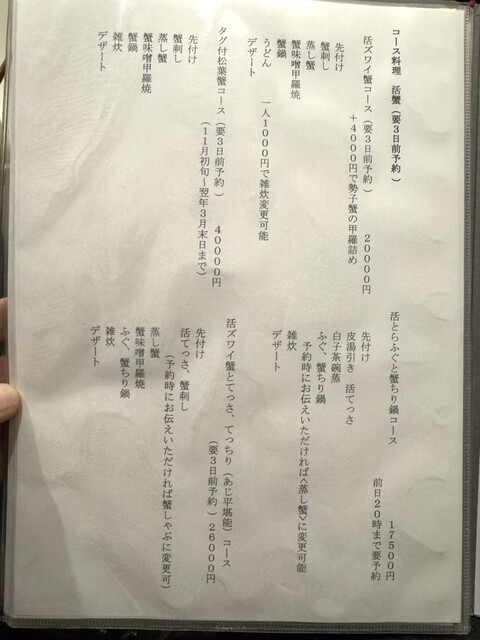 コース料理　活蟹（要３日前予約）
活ズワイ蟹コース（要３日前予約）　２００００円
＋４０００円で勢子蟹の甲羅詰め
先付け
蟹刺し
蒸し蟹
蟹味噌甲羅焼
蟹鍋
うどん　一人１０００円で雑炊変更可能
デザート
タグ付松葉蟹コース（要３日前予約）　４００００円
（１１月初旬～翌年３月末日まで）
先付け
蟹刺し
蒸し蟹
蟹味噌甲羅焼
蟹鍋
雑炊
デザート
活とらふぐと蟹ちり鍋コース　１７５００円
前日２０時まで要予約
先付け
皮湯引き　活てっさ
白子茶碗蒸
ふぐ、蟹ちり鍋
予約時にお伝えいただければ＜蒸し蟹＞に変更可能
雑炊
デザート
活ズワイ蟹とてっさ、てっちり（あじ平堪能）コース
（要３日前予約）２６０００円
先付け
活てっさ、蟹刺し
（予約時にお伝えいただければ蟹しゃぶに変更可）
蒸し蟹
蟹味噌甲羅焼
ふぐ、蟹ちり鍋
雑炊
デザート